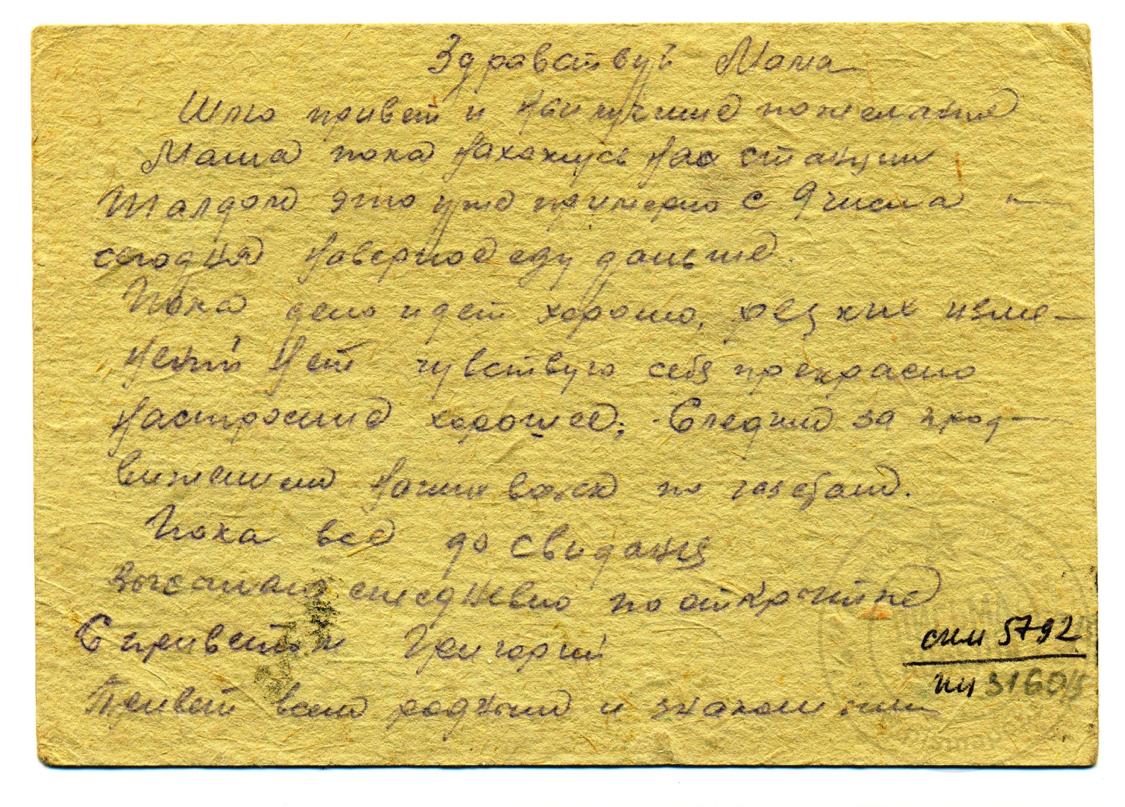 Здравствуй Мама
Шлю привет и наилучшие пожелания
Маша пока нахожусь на станции
Шалдом это уже примерно с 9 числа и
сегодня наверное еду дальше.
Пока дело идет хорошо, резких изме-
нений нет чувствую себя прекрасно
настроение хорошее. Следим за прод-
вижением наших войск по газетам.
Пока все до свидания
Высылаю ежедневно по открытке
С приветом Григорий
Привет всем родным и знакомым
5792
НЧ 31604